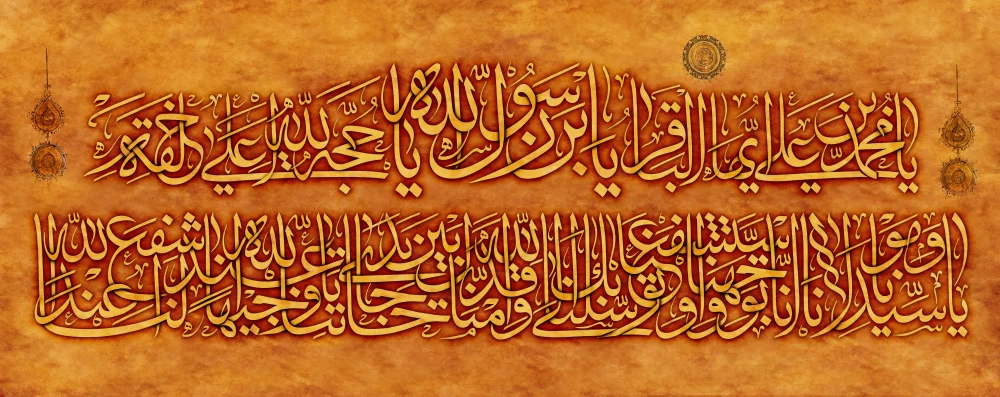 يا محمد بن علي ايها الباقر يا ابن رسول الله يا حجة الله على خلقه
يا سيدنا و مولانا انا توجهنا و استشفعنا و توسلنا بك الى الله و قدمناك بين يدي حاجاتنا يا وجيها عند الله اشفع لنا عند الله